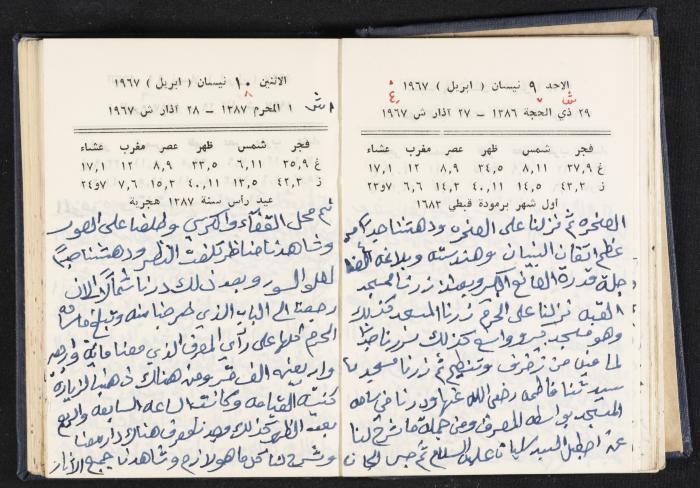 الاحد ٩ نيسان ( ابريل ) ١٩٦٧
٢٩ ذي الحجة ١٣٨٦ – ٢٧ آذار ش ١٩٦٧
فجر شمس ظهر عصر مغرب عشاء
غ ٢٧,٩ ٨,١١ ٢٤,٥ ٨,٩ ١٢ ١٧,١
ز ٤٣,٢ ١٤,٥ ٤٠,١١ ١٤,٢ ٦,٦ ٢٣و٧
اول شهر برمودة قبطي ١٦٨٣
الصخره ثم نزلنا على الصخره ودهشتنا جدا من
عظم اتقان البنيان وهندسته وبلاغة
جلة قدرة الصانع الكبير وبعدئذ زرنا المسجد
القبه نزلنا على الحرم زرنا المسجد كذلك
وهو مسجد كبير واسع كذلك سررنا جدا
لما فيه من زخرف وتنظيم ثم زرنا مسجد
سيدتنا فاطمه رضي الله عنها ودرنا في ساحه
المسجد بواسطه المصرف ومن جملة ما شرح لنا
عن اصطبل السيد سليمان عليه السلام ثم حبس الجان
الاثنين ١٠ نيسان ( ابريل ) ١٩٦٧
١ المحرم ١٣٨٧ – ٢٨ آذار ش ١٩٦٧
فجر شمس ظهر عصر مغرب عشاء
غ ٢٥,٩ ٦,١١ ٢٣,٥ ٨,٩ ١٢ ١٧,١
ز ٤٢,٣ ١٣,٥ ٤٠,١١ ١٥,٢ ٧,٦ ٢٤و٧
عيد راس سنة ١٣٨٧ هجرية
ثم محل القضاء والكرسي وطلعنا على السور
وشاهدنا مناظر تلفت النظر ودهشتنا جداً
لعلو السور وبعد ذلك درنا شمالاً الى ان
رجعنا الى الباب الذي ظهرنا منه وتبلغ مساحه
الحرم كلها على رأي المعرف الذي معنا مايه واربعين
واربعة الف متر ومن هناك ذهبنا لزيارة
كنيسة القيامه وكانت الساعه السابعه والربع
بعد الظهر كذلك وجدنا معرف هناك دار معنا
وشرح لنا كل ما هو لازم وشاهدنا جميع الآثار